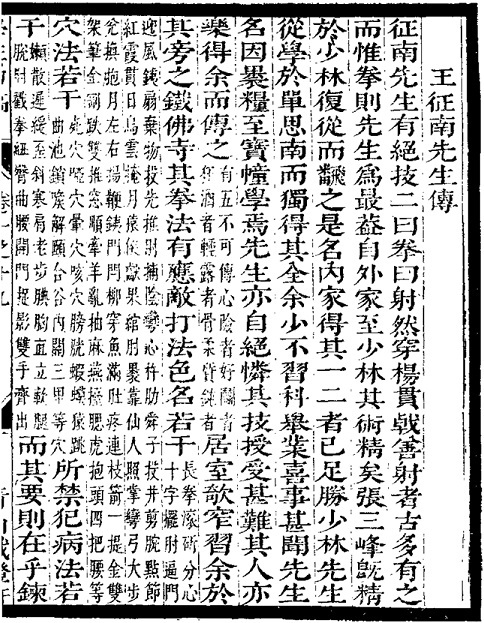 王征南先生傳
征南先生有絕技二曰拳曰射然穿楊貫戟善射者古多有之
而惟拳則先生爲最葢自外家至少林其術精矣張三峰旣精
於少林復從而翻之是名內家得其一二者已足勝少林先生
從學於單思南而獨得其全余少不習科舉業喜事甚聞先生
名因裹糧至寶幢學焉先生亦自絕憐其技授受甚難其人亦
樂得余而傳之有五不可傳心險者好鬬者狂酒者輕露者骨柔質鈍者居室欹窄習余於
其旁之鐵佛寺其拳法有應敵打法色名若干長拳滾斫分心十字擺肘逼門
迎風鐵扇棄物投先推肘捕陰彎心杵肋舜子投井剪腕點節
紅霞貫日烏雲掩月猿猴獻果綰肘裹靠仙人照掌彎弓大步
兌換抱月左右揚鞭鐵門閂柳穿魚滿肚疼連枝箭一提金雙
架筆金剛跌雙推窗順牽羊亂抽麻燕擡腮虎抱頭四把腰等
穴法若干死穴啞穴暈穴咳穴膀胱蝦蟇猿跳曲池鎖喉解頤合谷內關三里等穴所禁犯病法若
干嬾散遲緩歪斜寒肩老步腆胸直立軟腿脫肘戳拳紐臀曲腰開門捉影雙手齊出而其要則在乎鍊